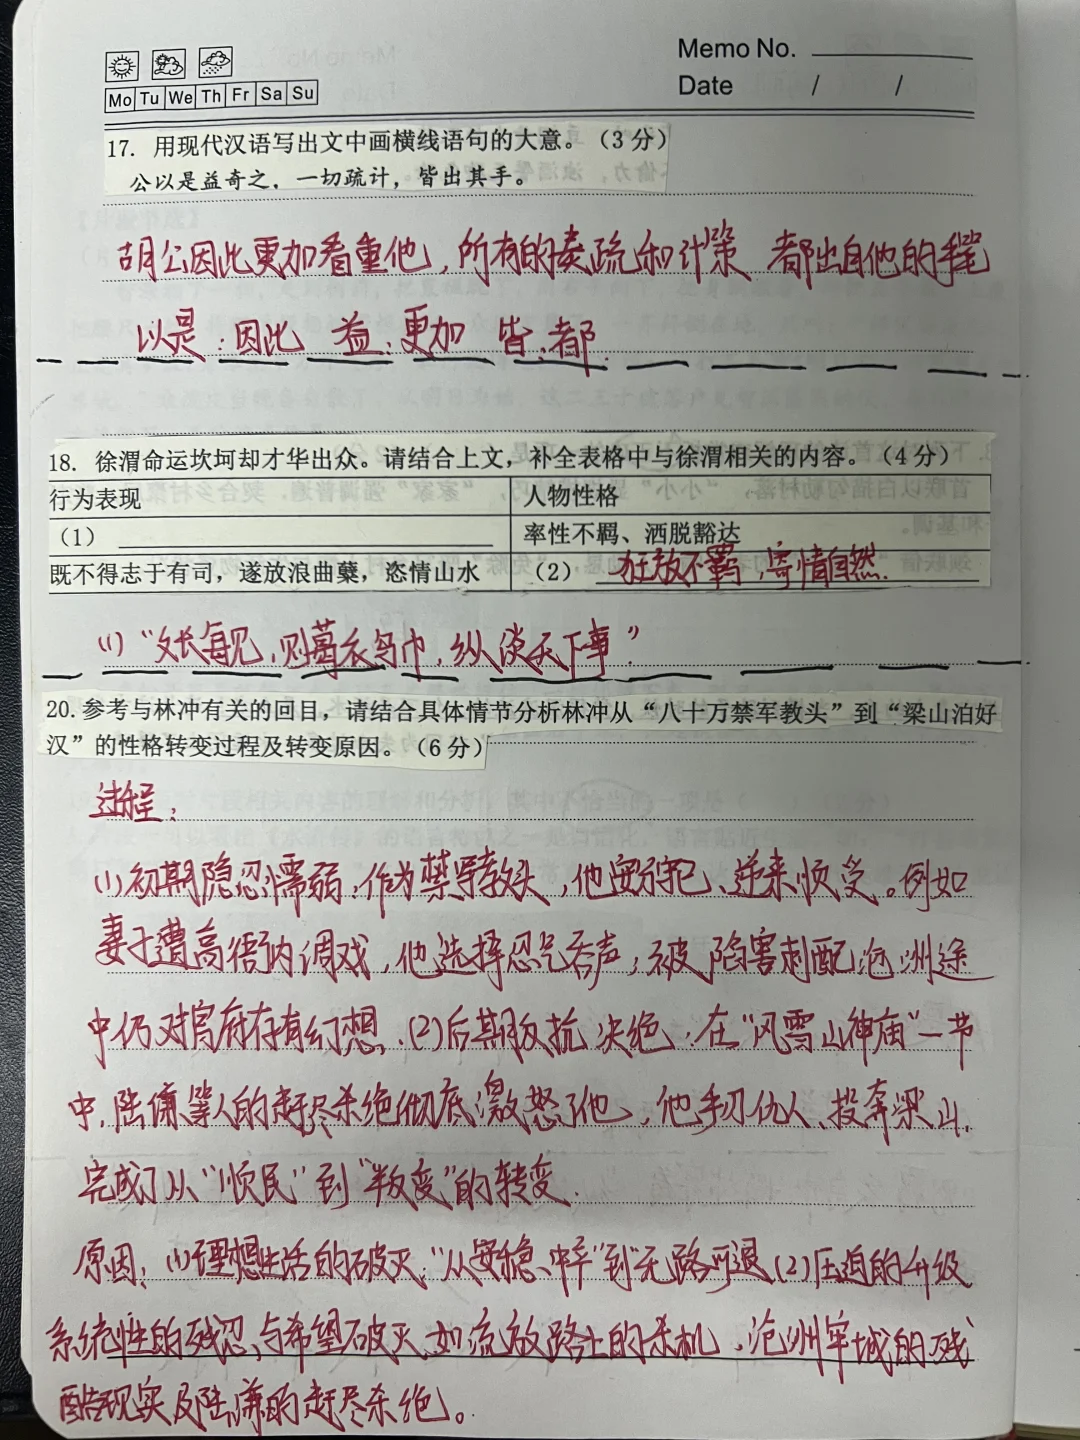 Memo No.
Mo Tu We Th Fr Sa Su
Date / /
17. 用现代汉语写出文中画横线语句的大意。（3 分）
公以是益奇之，一切疏计，皆出其手。
胡公因此更加看重他，所有的奏疏和计策 都出自他的手笔
以是：因此 益：更加 皆：都
18. 徐渭命运坎坷却才华出众。请结合上文，补全表格中与徐渭相关的内容。（4 分）
行为表现 人物性格
（1） 率性不羁、洒脱豁达
既不得志于有司，遂放浪曲蘖，恣情山水 （2） 狂放不羁，寄情自然.
(1) “文长每见，则葛衣乌巾，纵谈天下事”
20. 参考与林冲有关的回目，请结合具体情节分析林冲从“八十万禁军教头”到“梁山泊好
汉”的性格转变过程及转变原因。（6 分）
过程：
(1) 初期隐忍懦弱：作为禁军教头，他安分守己、逆来顺受。例如
妻子遭高衙内调戏，他选择忍气吞声，被陷害刺配沧州途
中仍对官府存有幻想.(2)后期反抗决绝.在“风雪山神庙”一节
中，陆谦等人的赶尽杀绝彻底激怒了他，他手刃仇人、投奔梁山，
完成了从“顺民”到“叛变”的转变.
原因：(1)理想生活的破灭：“从安稳、
到“无路可退(2)压迫的升级
系统性的残忍与希望破灭，如流放路上的杀机、沧州牢城的残
酷现实及陆谦的赶尽杀绝。